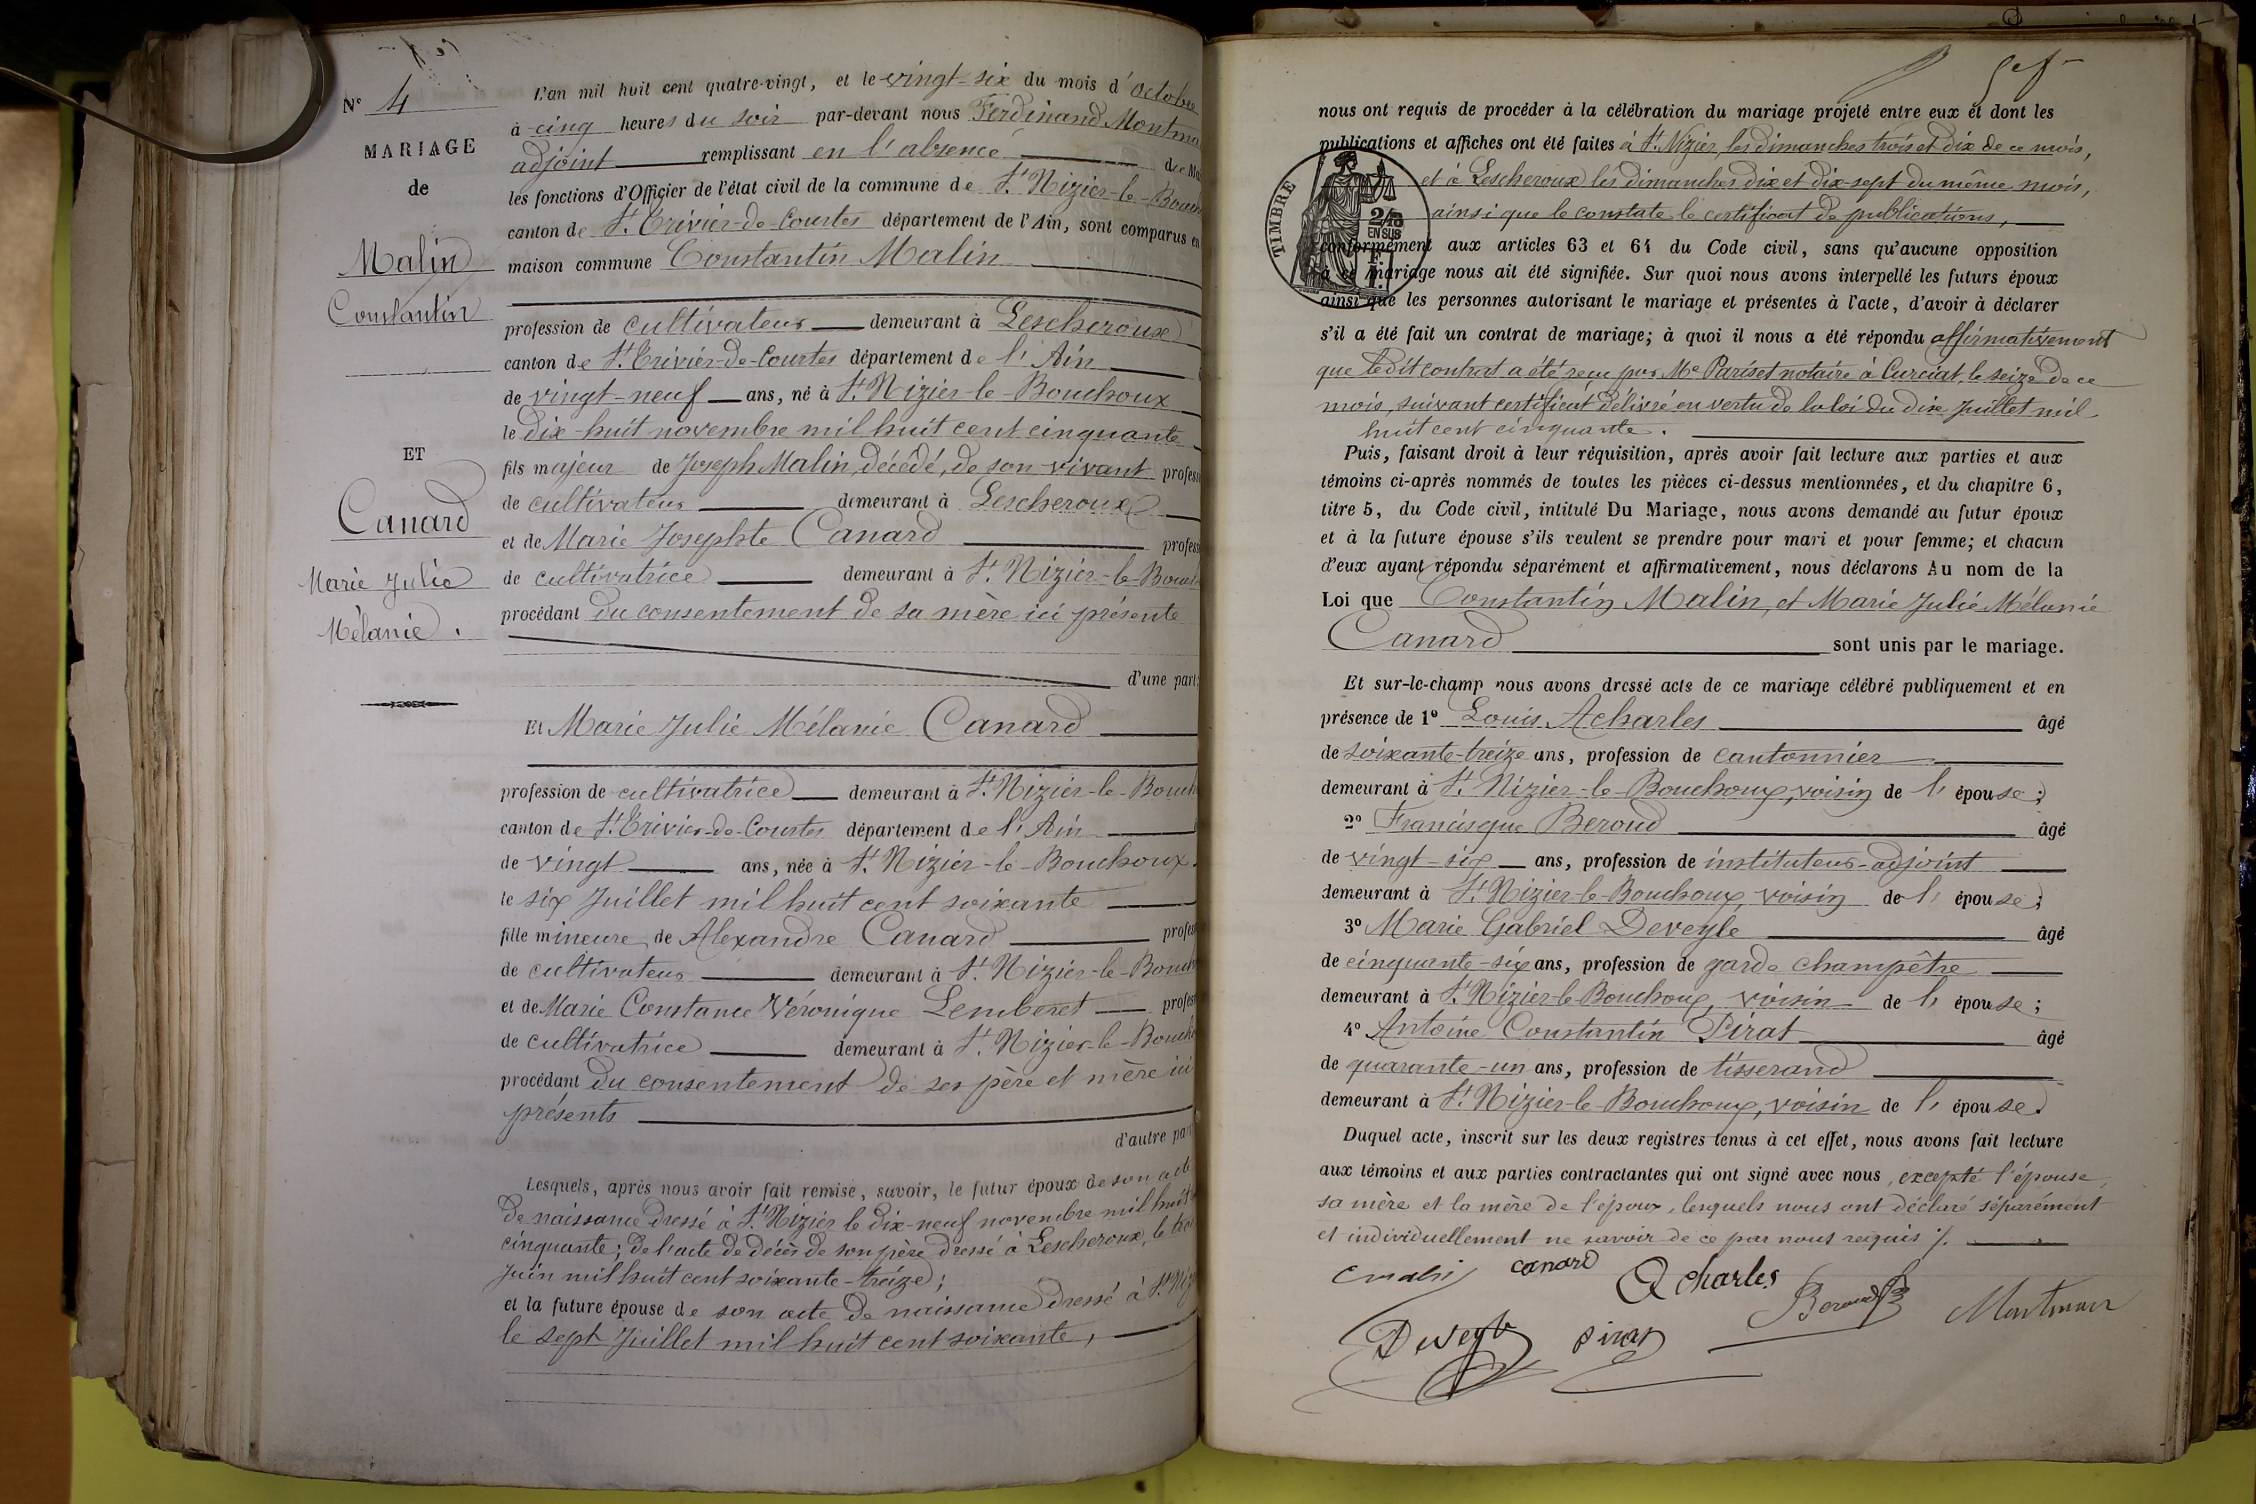 N° 4
MARIAGE
de
Malin
Constantin
ET
Canard
Marie Julie
Mélanie.
L'an mil huit cent quatre-vingt, et le vingt-six du mois d'octobre
à cinq heures du soir par-devant nous Ferdinand Montma
adjoint remplissant en l'absence de Ma
les fonctions d'Officier de l'état civil de la commune de St. Nizier-le-Bouch
canton de St. Trivier-de-Courtes département de l'Ain, sont comparus en
maison commune Constantin Malin
profession de cultivateur demeurant à Lescheroux
canton de St. Trivier-de-Courtes département de l'Ain
de vingt-neuf ans, né à St. Nizier-le-Bouchoux
le dix-huit novembre mil huit cent cinquante
fils majeur de Joseph Malin, décédé, de son vivant profess
de cultivateur demeurant à Lescheroux
et de Marie Josephte Canard profess
de cultivatrice demeurant à St. Nizier-le-Bouch
procédant du consentement de sa mère ici présente
d'une part;
Et Marie Julie Mélanie Canard
profession de cultivatrice demeurant à St. Nizier-le-Bouch
canton de St. Trivier-de-Courtes département de l'Ain
de vingt ans, née à St. Nizier-le-Bouchoux.
le six Juillet mil huit cent soixante
fille mineure de Alexandre Canard profes
de cultivateur demeurant à St. Nizier-le-Bouch
et de Marie Constance Véronique Lemberet profes
de cultivatrice demeurant à St. Nizier-le-Bouch
procédant du consentement de ses père et mère ici
présents
d'autre part
Lesquels, après nous avoir fait remise, savoir, le futur époux de son acte
de naissance dressé à St. Nizier le dix-neuf novembre mil huit
cinquante; de l'acte de décès de son père dressé à Lescheroux, le
Juin mil huit cent soixante-treize;
et la future épouse de son acte de naissance dressé à St. Niz
le sept Juillet mil huit cent soixante,
nous ont requis de procéder à la célébration du mariage projeté entre eux et dont les
publications et affiches ont été faites à St. Nizier, les dimanches trois et dix de ce mois,
et à Lescheroux les dimanches dix et dix-sept du même mois,
ainsi que le constate le certificat de publications,
TIMBRE
2/10
EN SUS
1 F.
conformément aux articles 63 et 64 du Code civil, sans qu'aucune opposition
à ce mariage nous ait été signifiée. Sur quoi nous avons interpellé les futurs époux
ainsi que les personnes autorisant le mariage et présentes à l'acte, d'avoir à déclarer
s'il a été fait un contrat de mariage; à quoi il nous a été répondu affirmativement
que ledit contrat a été reçu par Me Pariset notaire à Curciat, le seize de ce
mois, suivant certificat délivré en vertu de la loi du dix Juillet mil
huit cent cinquante.
Puis, faisant droit à leur réquisition, après avoir fait lecture aux parties et aux
témoins ci-après nommés de toutes les pièces ci-dessus mentionnées, et du chapitre 6,
titre 5, du Code civil, intitulé Du Mariage, nous avons demandé au futur époux
et à la future épouse s'ils veulent se prendre pour mari et pour femme; et chacun
d'eux ayant répondu séparément et affirmativement, nous déclarons Au nom de la
Loi que Constantin Malin, et Marie Julie Mélanie
Canard sont unis par le mariage.
Et sur-le-champ nous avons dressé acte de ce mariage célébré publiquement et en
présence de 1° Louis Acharles âgé
de soixante-treize ans, profession de cantonnier
demeurant à St. Nizier-le-Bouchoux, voisin de l'épouse;
2° Francisque Beroud âgé
de vingt-six ans, profession de instituteur-adjoint
demeurant à St. Nizier-le-Bouchoux, voisin de l'épouse;
3° Marie Gabriel Deveyle âgé
de cinquante-six ans, profession de garde champêtre
demeurant à St. Nizier-le-Bouchoux, voisin de l'épouse;
4° Antoine Constantin Pirat âgé
de quarante-un ans, profession de tisserand
demeurant à St. Nizier-le-Bouchoux, voisin de l'épouse.
Duquel acte, inscrit sur les deux registres tenus à cet effet, nous avons fait lecture
aux témoins et aux parties contractantes qui ont signé avec nous, excepté l'épouse,
sa mère et la mère de l'époux, lesquels nous ont déclaré séparément
et individuellement ne savoir de ce par nous requis ./.
canard Acharles
Beroud
Deveyle pirat